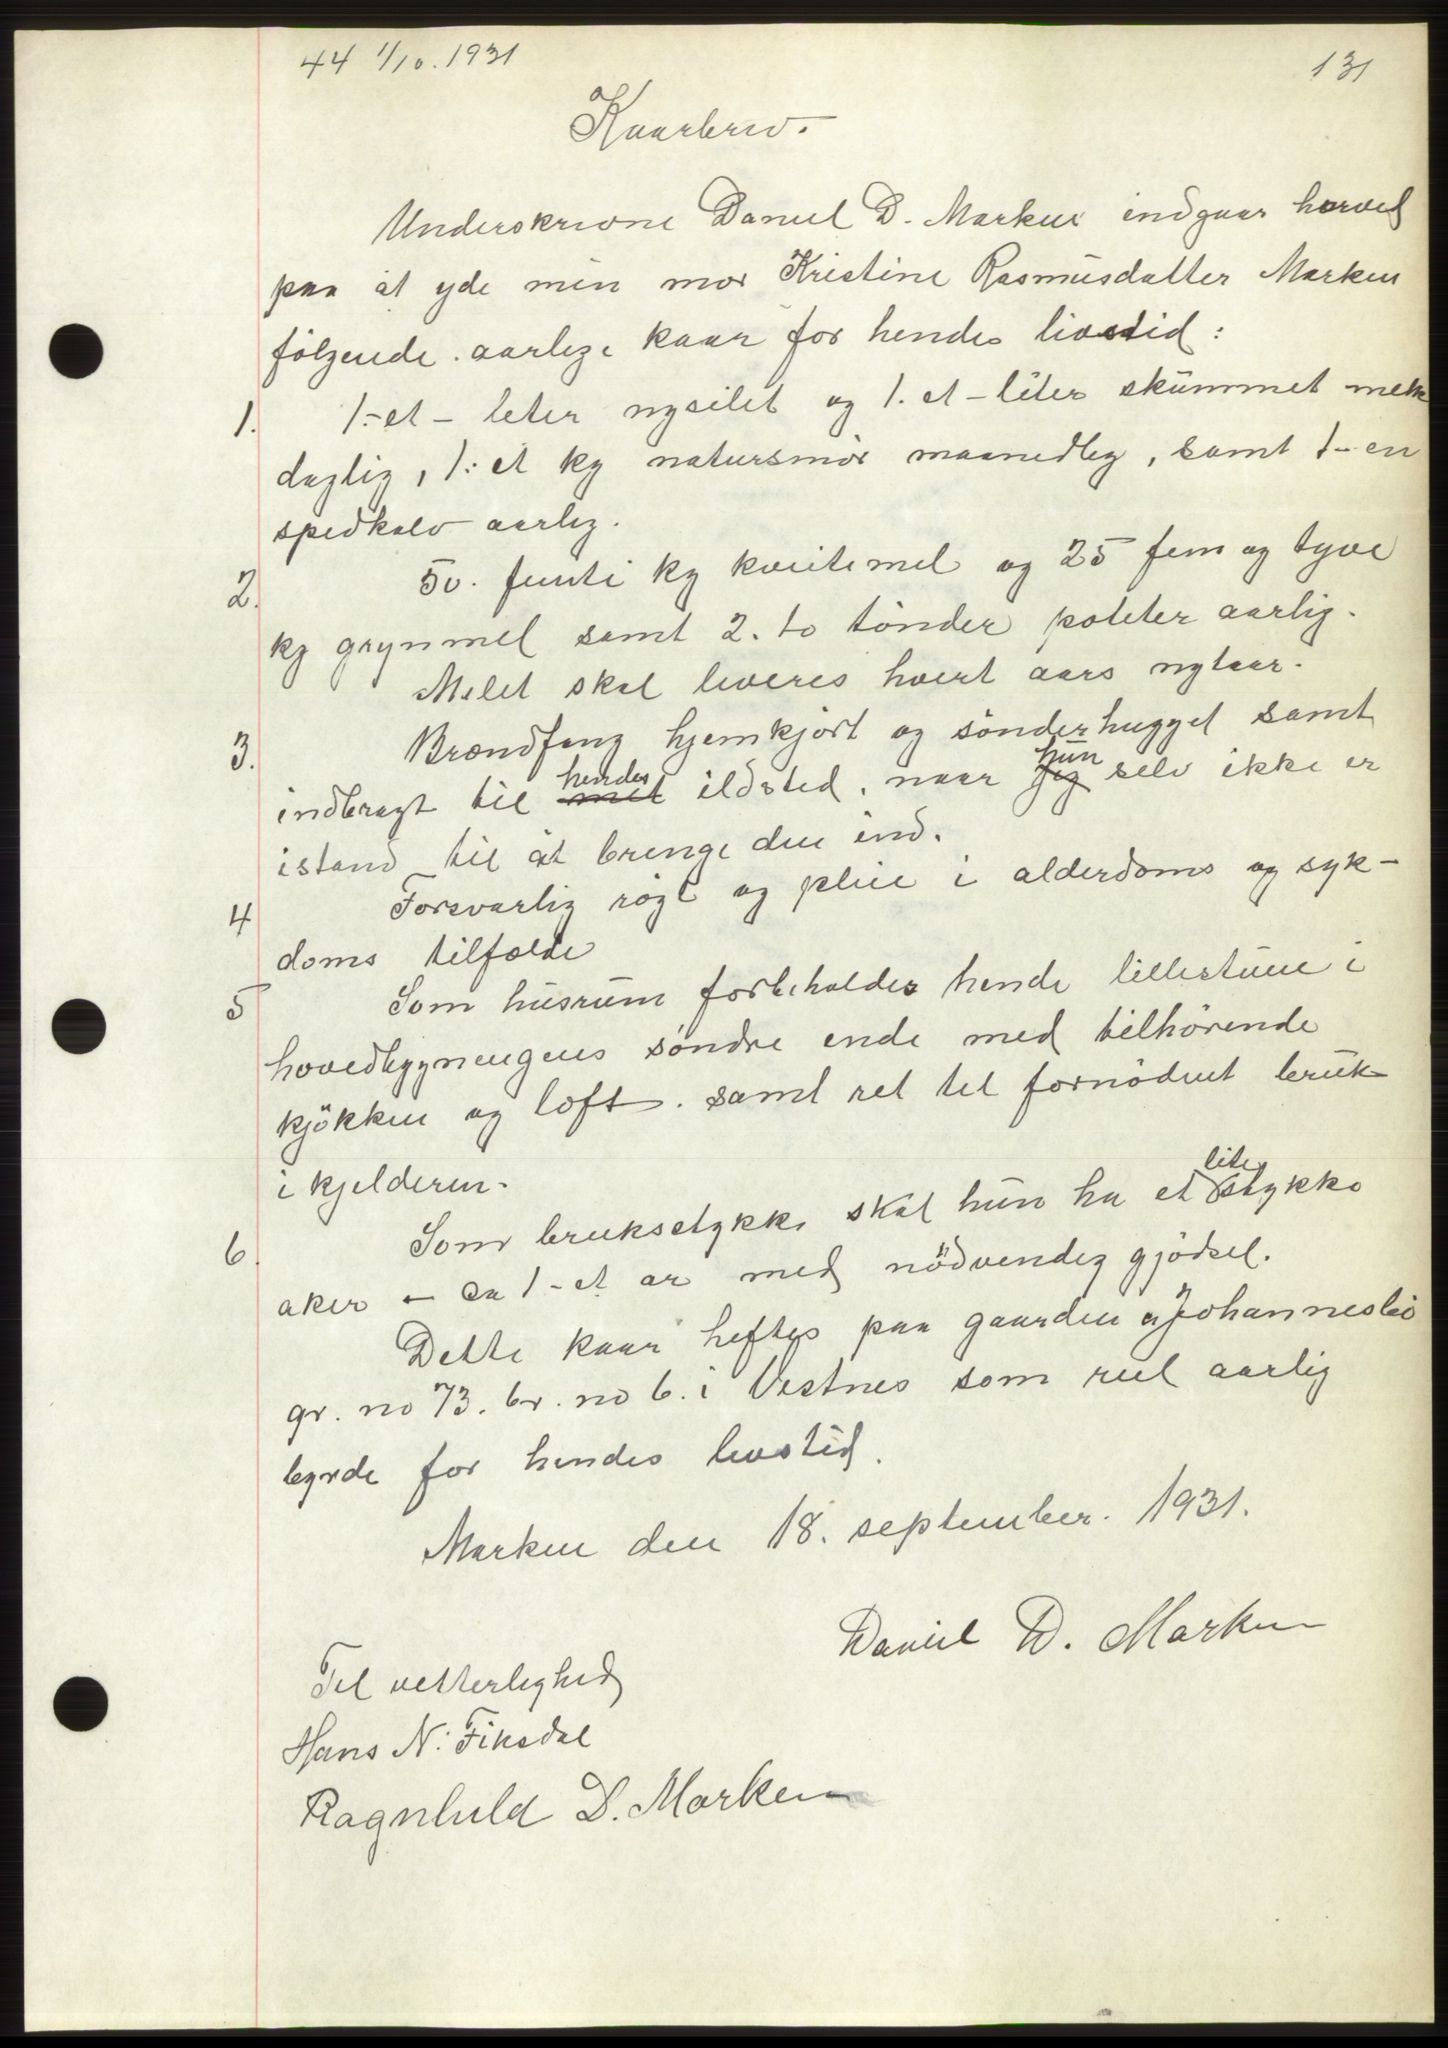 44 1/10. 1931
131
Kaarbrev.
Underskrevne Daniel D. Marken indgaar herved
paa at yde min mor Kristine Rasmusdatter Marken
følgende aarlige kaar for hendes livstid:
1. 1.-et- liter nysilet og 1. et-liter skummet melk
daglig, 1: et kg natursmör maanedleg, samt 1- en
spedkalv aarlig.
2. 50. femti kg kveitemel og 25 fem og tyve
kg grynmel samt 2. to tönder poteter aarlig.
Melet skal leveres hvert aars nytaar.
3. Brændfang hjemkjört og sönderhugget samt
indbragt til hendes ildsted, naar hun selv ikke er
istand til at bringe den ind.
4 Forsvarlig rögt og pleie i alderdoms og syk-
doms tilfælde
5 Som husrum forbeholdes hende lillestuue i
hovedbygningens söndre ende med tilhörende
kjökken og loft. samt ret til fornödent bruk
i kjelderen.
6. Som bruksstykke skal hun ha et lite stykke
aker - ca 1- et ar med nödvendig gjödsel.
Dette kaar heftes paa gaarden Johannesbö
gr. no 73. br. no 6. i Vestnes som reel aarlig
byrde for hendes livstid.
Marken den 18. september. 1931.
Daniel D. Marken
Til vetterlighed
Hans N. Fiksdal
Ragnhild D. Marken